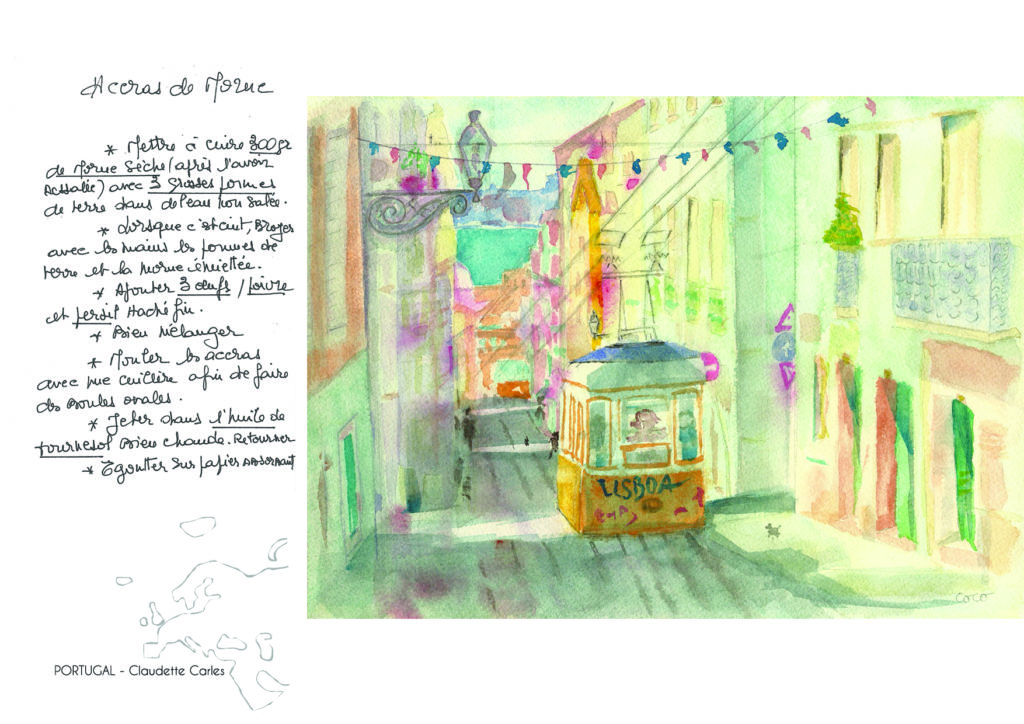 Accras de Morue
* Mettre à cuire 300gr
de Morue Sèche (après l'avoir
dessalée) avec 3 grosses pommes
de terre dans de l'eau non salée.
* Lorsque c'est cuit, Broyer
avec les mains les pommes de
terre et la morue émiettée.
* Ajouter 3 œufs / Poivre
et persil Haché fin.
* Bien Mélanger
* Mouler les accras
avec une cuillère afin de faire
des boules ovales.
* Jeter dans l'huile de
tournesol Bien chaude. Retourner
* Egoutter sur papier absorbant
LISBOA
coco
PORTUGAL - Claudette Carles